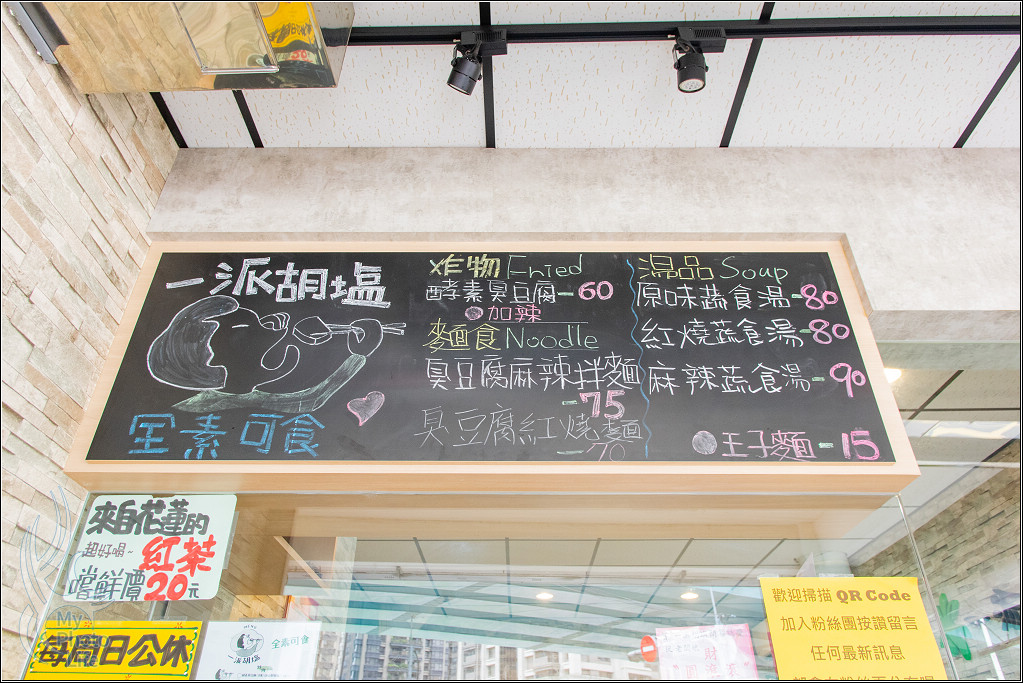 一派胡塩
全素可食
炸物 Fried
酵素臭豆腐-60
加辣
麵食 Noodle
臭豆腐麻辣拌麵
-75
臭豆腐紅燒麵
-70
湯品 Soup
原味蔬食湯-80
紅燒蔬食湯-80
麻辣蔬食湯-90
王子麵-15
來自花蓮的
超好喝~紅茶
嚐鮮價20元
每周日公休
一派胡塩
全素可食
歡迎掃描 QR Code
加入粉絲團按讚留言
任何最新訊息